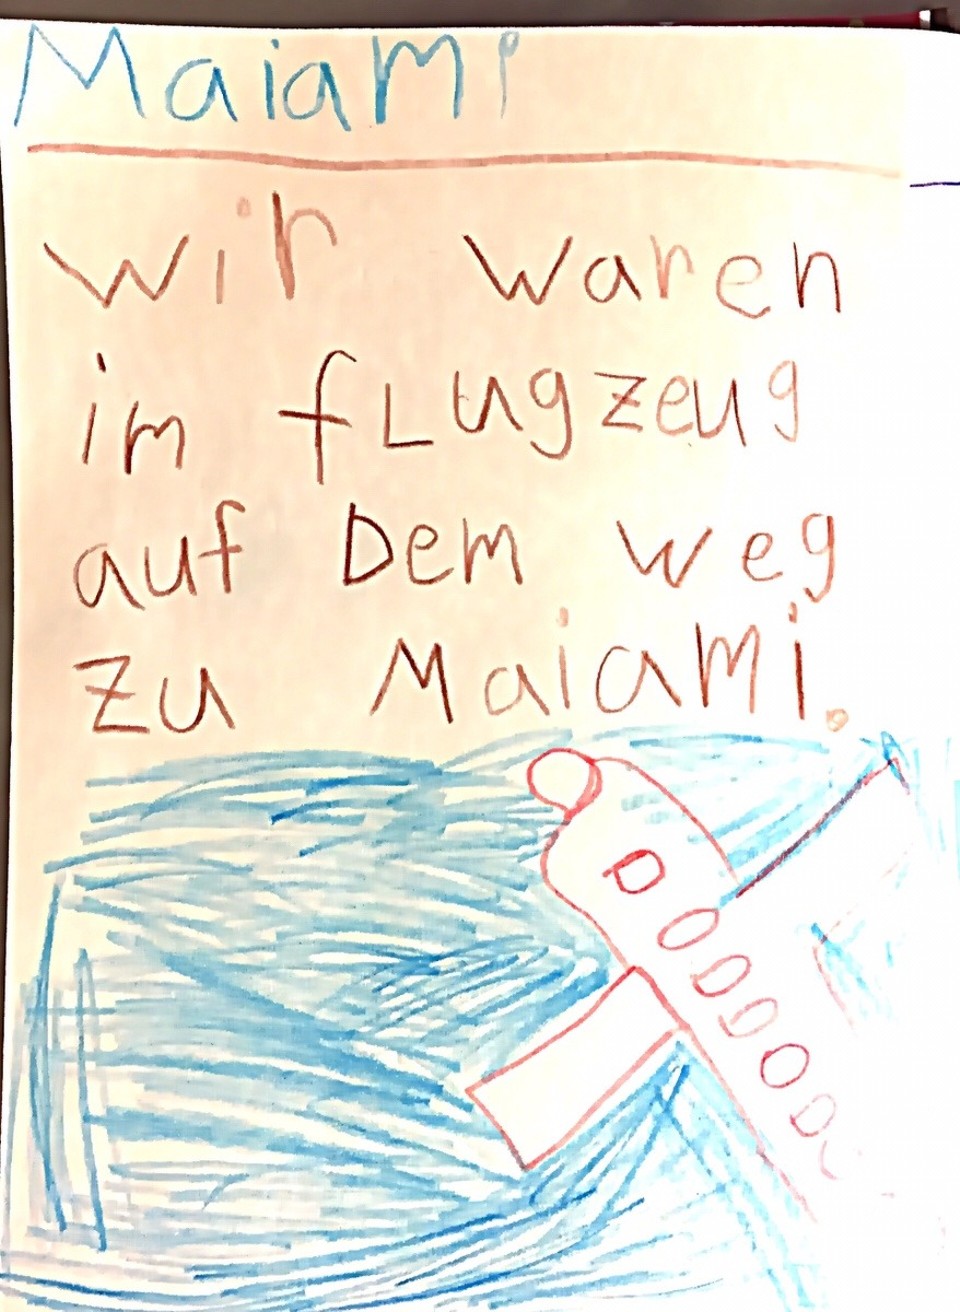 Maiami
wir waren
im fLugzeug
auf Dem weg
zu Maiami.